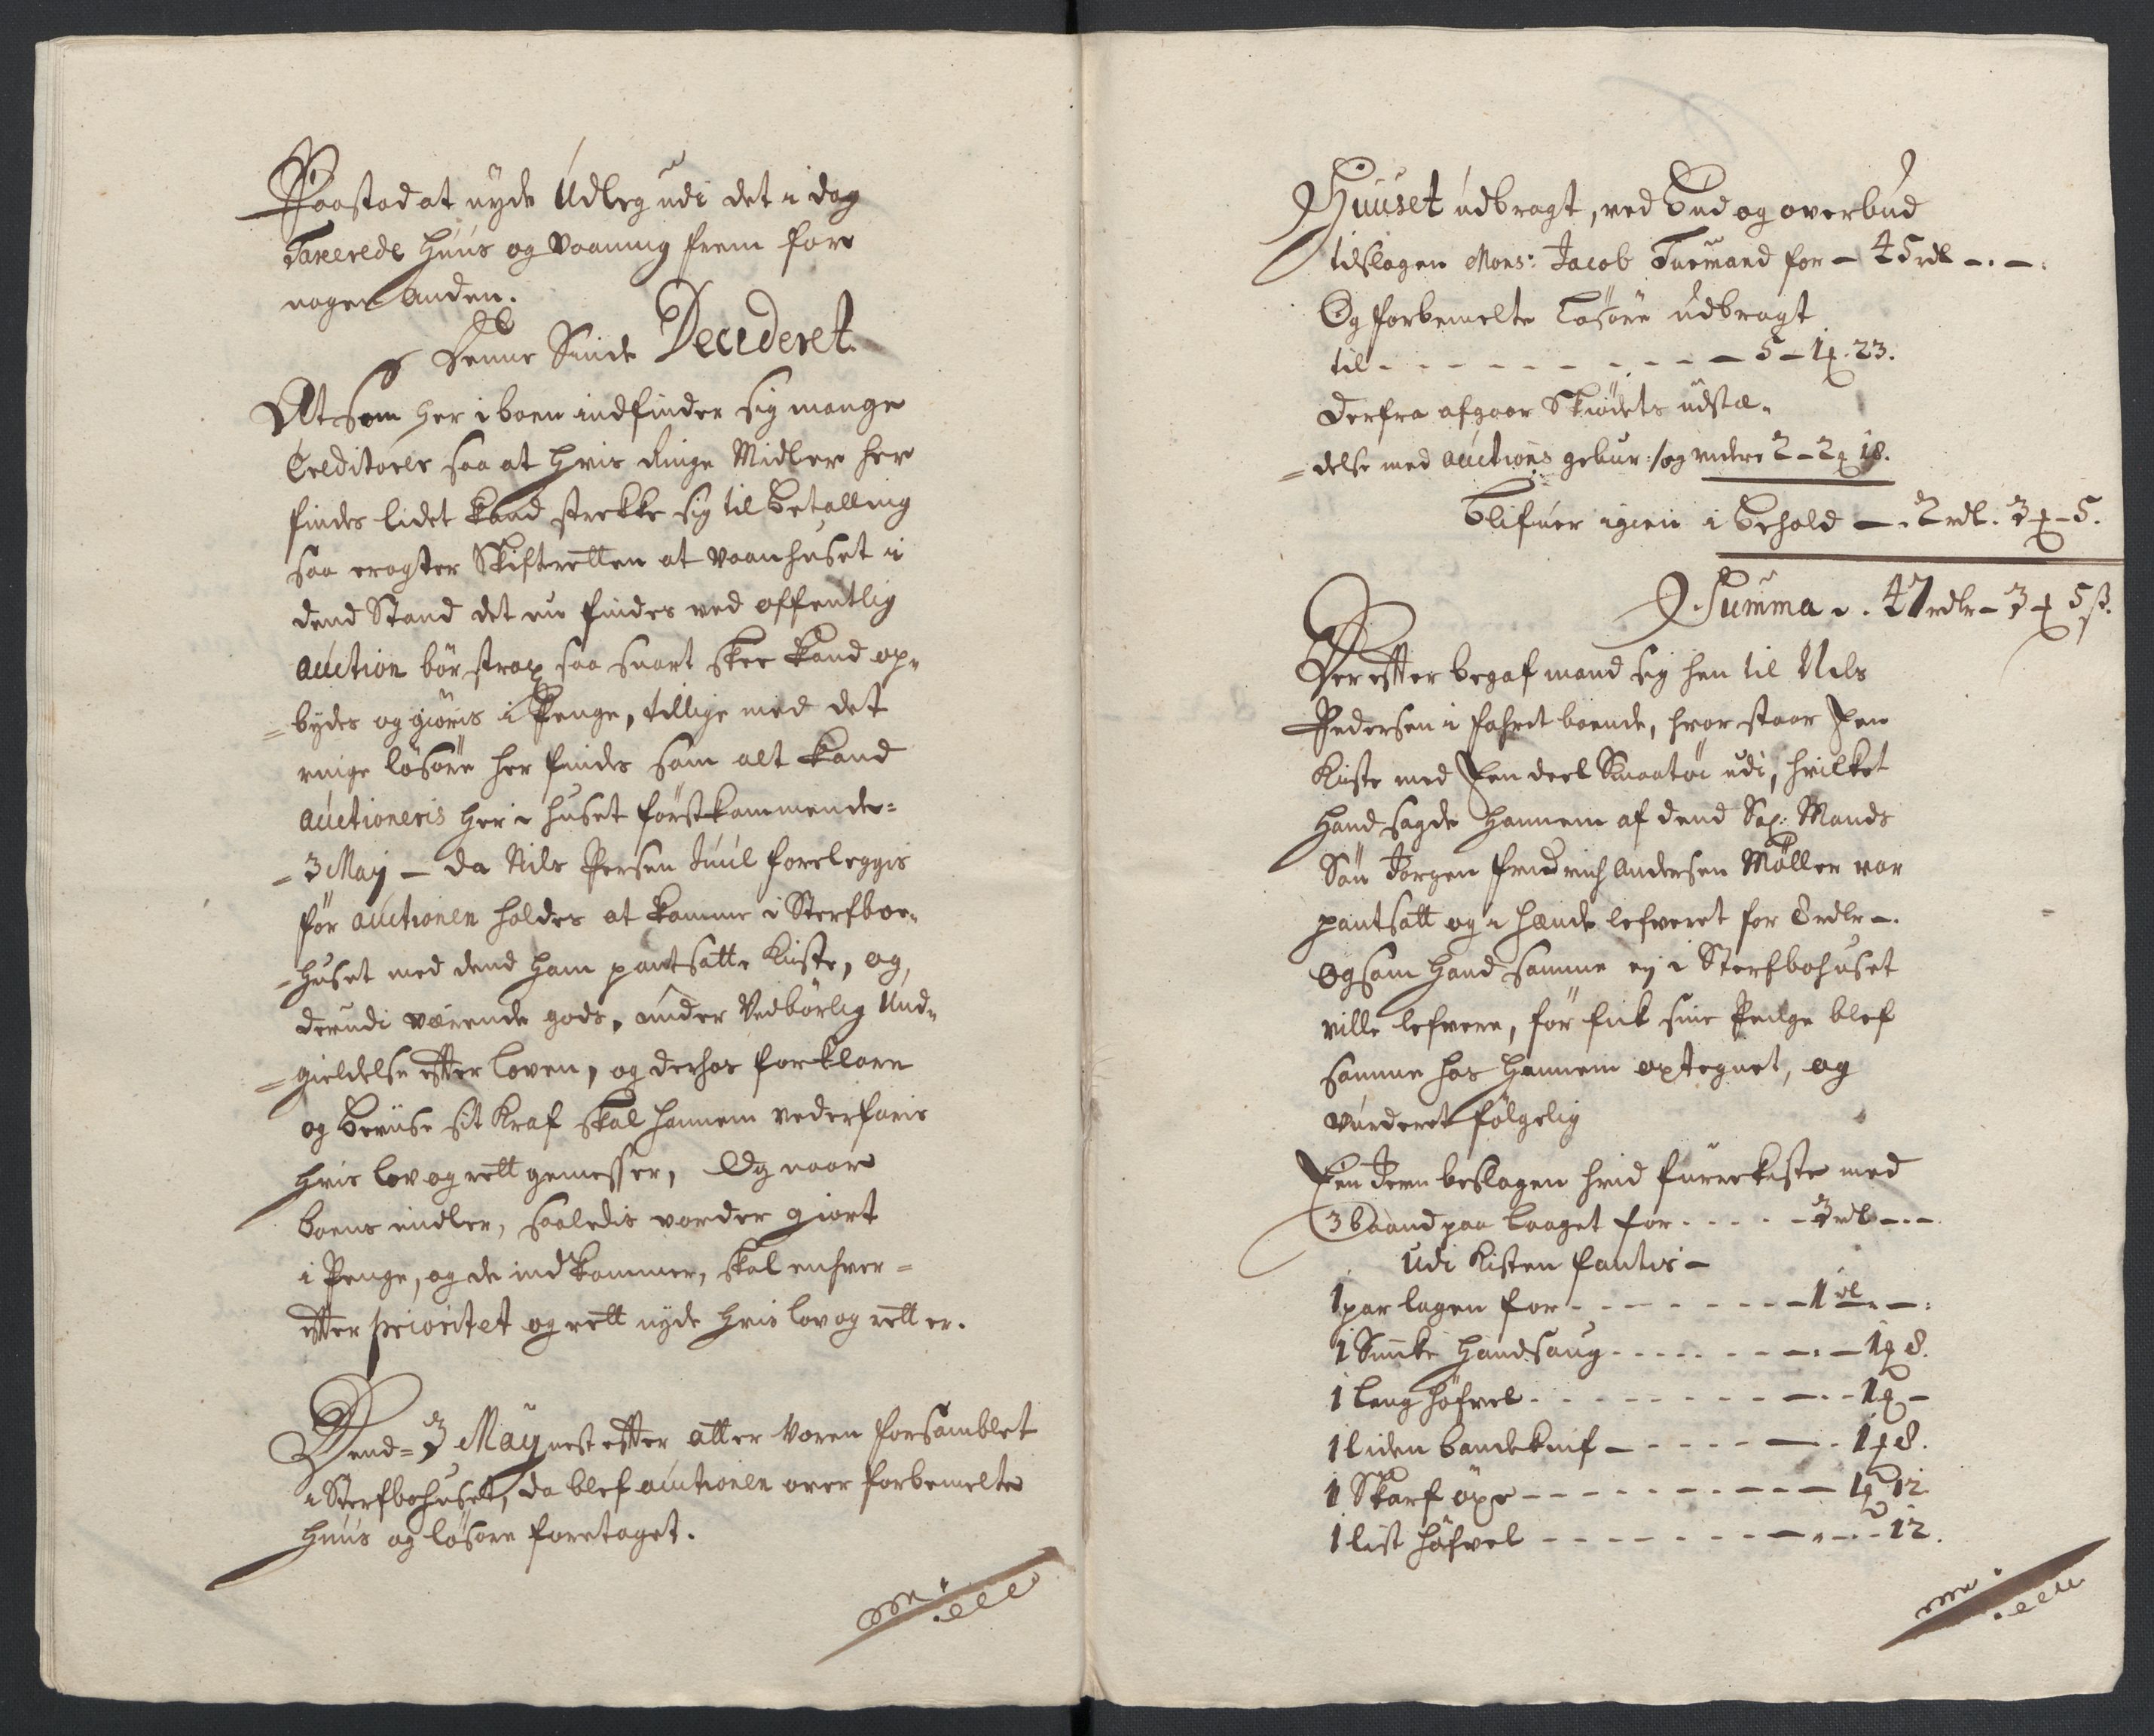 Paastod at nyde Udleg udi det i dag
Taxerede Huus og Vaaning frem for
nogen Anden.
Denne Sinde Decideret
At som her i boen indfinder sig mange
Creditorer saa at hvis ringe Midler her
findes lidet kand strekke sig til Betalling
saa eragter Skiftretten at Vaanhuset i
dend Stand det nu findes ved offentlig
auction bör strax saa snart skee kand op-
bydes og giöris i Penge, tillige med det
ringe lösöre her findes som alt kand
auctioneris her i huset förstkommende-
3 Maij - da Nils Persen Juul foreleggis
för auctionen holdes at komme i Sterfboe-
huset med dend ham pantsatte Kiste, og
derudi værende gods, under Vedbörlig Und-
gieldelse efter Loven, og derhos forklare
og bevise sit Kraf skal hannem vederfaris
hvis lov og rett gemesser, Og naar
boens midler, saaledis vorder giort
i Penge, og de indkommer, skal enhver-
efter prioritet og rett nyde hvis lov og rett er.
Dend 3 Maij nest efter atter voren forsamblet
i Sterfbohuset, da blef auctionen over forbemelte
Huus og lösöre foretaget.
Huuset udbragt, ved Bud og overbud
tilslagen Mons: Jacob Tuemand for - 45 rdl -.-.
Og forbemelte Lösöre udbragt
til - - - - - - - - - 5 - 1 ₰. 23.
Derfra afgaar Skiödets udstæ-
delse med auctions gebur: og videre 2 - 2 ₰ 18.
Blifuer igien i Behold - 2 rdl. 3 ₰ - 5.
Summa . 47 rdlr - 3 ₰ 5 ß.
Derefter begaf mand sig hen til Nils
Pedersen i fahret boende, hvor staar Een
Kiste med Een deel Smaatöi udi, hvilket
hand sagde hannem af dend Sal: Mands
Sön Jörgen fridrich Andersen Möller var
pantsatt og i hænde lefveret for 8 rdlr -.
Og som hand samme ej i Sterfbohuset
ville lefvere, för fick sine Penge blef
samme hos hannem optegnet, og
vurderet fölgelig
Een Jern beslagen hvid furrekiste med
3 baand paa laaget for - - - - - 3 rdl -.-
Udi Kisten fantis -
1 par lagen for - - - - - - - 1 rdl - -:
1 Snicke Handsaug - - - - - - - 1 ₰ 8.
1 lang höfvel - - - - - - - - 1 ₰ -
1 liden bandeknif - - - - - - 1 ₰ 8.
1 Skarf öxe - - - - - - - - 1 ₰ 12
1 list höfvel - - - - - - - - 12.